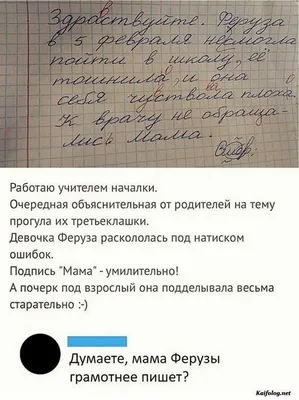 Здраствуйте. Феруза
в 5 февраля несмогла
пойти в школу, её
тошнила, и она
себя чуствола плоха.
К врачу не обраща-
лись Мама.
Работаю учителем началки.
Очередная объяснительная от родителей на тему
прогула их третьеклашки.
Девочка Феруза раскололась под натиском
ошибок.
Подпись "Мама" - умилительно!
А почерк под взрослый она подделывала весьма
старательно :-)
Думаете, мама Ферузы
грамотнее пишет?
Kaifolog.net